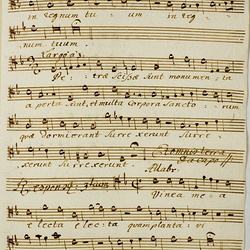 in regnum tu: um in reg:
num tuum.
Largo
Pe: træ scissæ sunt monumenta
aperta sunt, et multa Corpora Sancto: rum
quæ dormierant Surrexerunt Surre:
xerunt Surrexerunt.
Da Capo
Allabr:
Vinea mea
electa elec:ta quam planta: vi